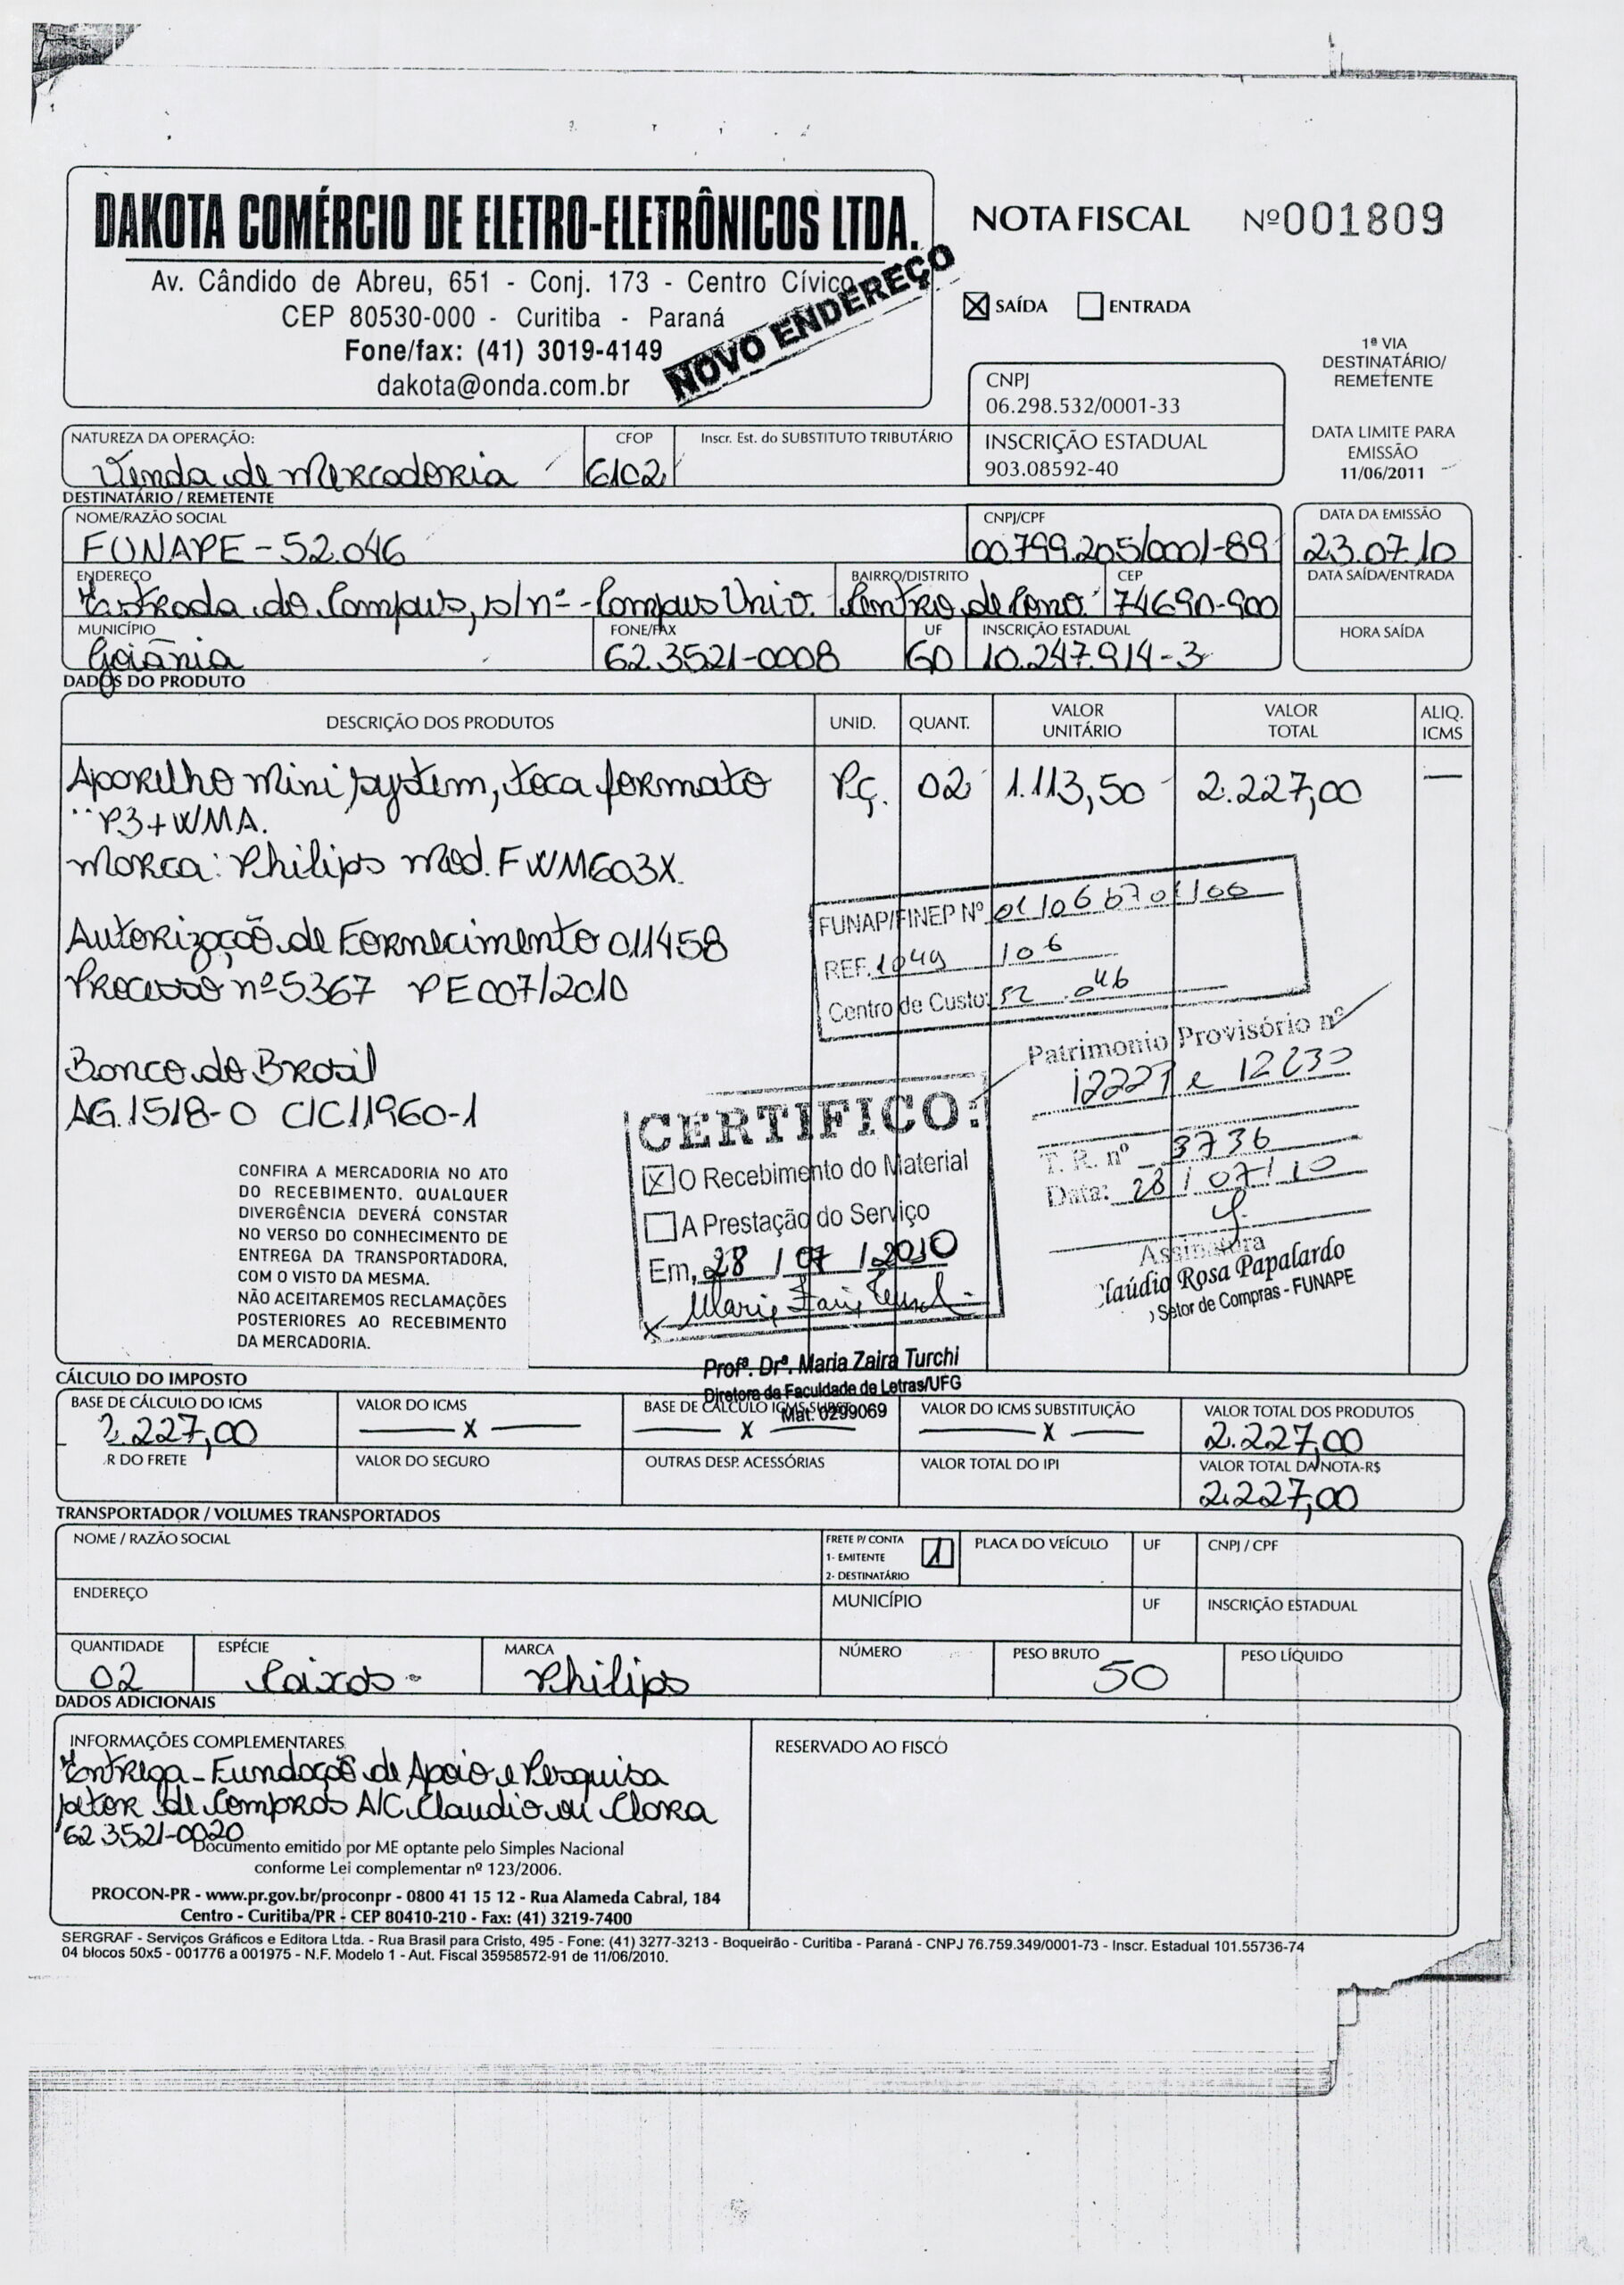 DAKOTA COMÉRCIO DE ELETRO-ELETRÔNICOS LTDA.
Av. Cândido de Abreu, 651 - Conj. 173 - Centro Cívico
CEP 80530-000 - Curitiba - Paraná
Fone/fax: (41) 3019-4149
dakota@onda.com.br
NOVO ENDEREÇO
NOTA FISCAL Nº 001809
X SAÍDA ENTRADA
1ª VIA
DESTINATÁRIO/
REMETENTE
CNPJ
06.298.532/0001-33
INSCRIÇÃO ESTADUAL
903.08592-40
DATA LIMITE PARA
EMISSÃO
11/06/2011
NATUREZA DA OPERAÇÃO: CFOP Inscr. Est. do SUBSTITUTO TRIBUTÁRIO
Venda de Mercadoria 6102
DESTINATÁRIO / REMETENTE
NOME/RAZÃO SOCIAL CNPJ/CPF DATA DA EMISSÃO
FUNAPE - 52.046 00.799.205/0001-89 23.07.10
ENDEREÇO BAIRRO/DISTRITO CEP DATA SAÍDA/ENTRADA
Estrada do Campus, s/nº - Campus Univ. 74690-900
MUNICÍPIO FONE/FAX UF INSCRIÇÃO ESTADUAL HORA SAÍDA
Goiânia 62.3521-0008 GO 10.247.914-3
DADOS DO PRODUTO
DESCRIÇÃO DOS PRODUTOS UNID. QUANT. VALOR UNITÁRIO VALOR TOTAL ALIQ. ICMS
Aparelho mini system, toca formato Pç. 02 1.113,50 2.227,00 —
P3+WMA.
Marca: Philips Mod. FWM603X.
FUNAP/FINEP Nº
REF. 1049 106
Centro de Custo: 52.046
Autorização de Fornecimento 011458
Processo nº 5367 PE007/2010
Banco do Brasil
AG. 1518-0 C/C 11960-1
Patrimonio Provisório nº
T. R. nº 3736
Data: 28/07/10
Assinatura
Claúdio Rosa Papalardo
Setor de Compras - FUNAPE
CERTIFICO:
X O Recebimento do Material
A Prestação do Serviço
Em, 28 / 07 / 2010
Profª. Drª. Maria Zaira Turchi
Diretora da Faculdade de Letras/UFG
Mat. 0299069
CONFIRA A MERCADORIA NO ATO
DO RECEBIMENTO. QUALQUER
DIVERGÊNCIA DEVERÁ CONSTAR
NO VERSO DO CONHECIMENTO DE
ENTREGA DA TRANSPORTADORA,
COM O VISTO DA MESMA.
NÃO ACEITAREMOS RECLAMAÇÕES
POSTERIORES AO RECEBIMENTO
DA MERCADORIA.
CÁLCULO DO IMPOSTO
BASE DE CÁLCULO DO ICMS VALOR DO ICMS BASE DE CÁLCULO ICMS SUBST. VALOR DO ICMS SUBSTITUIÇÃO VALOR TOTAL DOS PRODUTOS
2.227,00 — X — — X — — X — 2.227,00
R DO FRETE VALOR DO SEGURO OUTRAS DESP. ACESSÓRIAS VALOR TOTAL DO IPI VALOR TOTAL DA NOTA-R$
2.227,00
TRANSPORTADOR / VOLUMES TRANSPORTADOS
NOME / RAZÃO SOCIAL FRETE P/ CONTA PLACA DO VEÍCULO UF CNPJ / CPF
1- EMITENTE 1
2- DESTINATÁRIO
ENDEREÇO MUNICÍPIO UF INSCRIÇÃO ESTADUAL
QUANTIDADE ESPÉCIE MARCA NÚMERO PESO BRUTO PESO LÍQUIDO
02 Caixas Philips 50
DADOS ADICIONAIS
INFORMAÇÕES COMPLEMENTARES RESERVADO AO FISCO
Entrega - Fundação de Apoio e Pesquisa
Setor de Compras A/C Claudio ou Clara
62 3521-0020
Documento emitido por ME optante pelo Simples Nacional
conforme Lei complementar nº 123/2006.
PROCON-PR - www.pr.gov.br/proconpr - 0800 41 15 12 - Rua Alameda Cabral, 184
Centro - Curitiba/PR - CEP 80410-210 - Fax: (41) 3219-7400
SERGRAF - Serviços Gráficos e Editora Ltda. - Rua Brasil para Cristo, 495 - Fone: (41) 3277-3213 - Boqueirão - Curitiba - Paraná - CNPJ 76.759.349/0001-73 - Inscr. Estadual 101.55736-74
04 blocos 50x5 - 001776 a 001975 - N.F. Modelo 1 - Aut. Fiscal 35958572-91 de 11/06/2010.